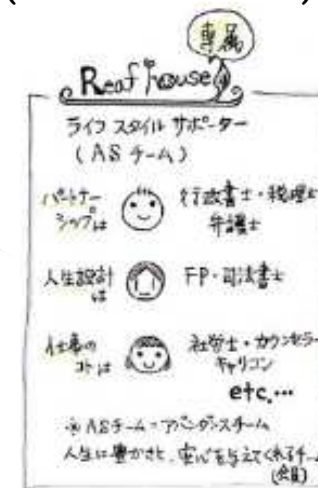 専属
Reaf house
ライフ スタイル サポーター
(AS チーム)
パートナー
シップは
行政書士・税理士
弁護士
人生設計
は
FP・司法書士
仕事の
コトは
社労士・カウンセラー
キャリコン
etc.…
※ ASチーム=アバンダンスチーム
人生に豊かさと、安心を与えてくれるチーム
(会員)